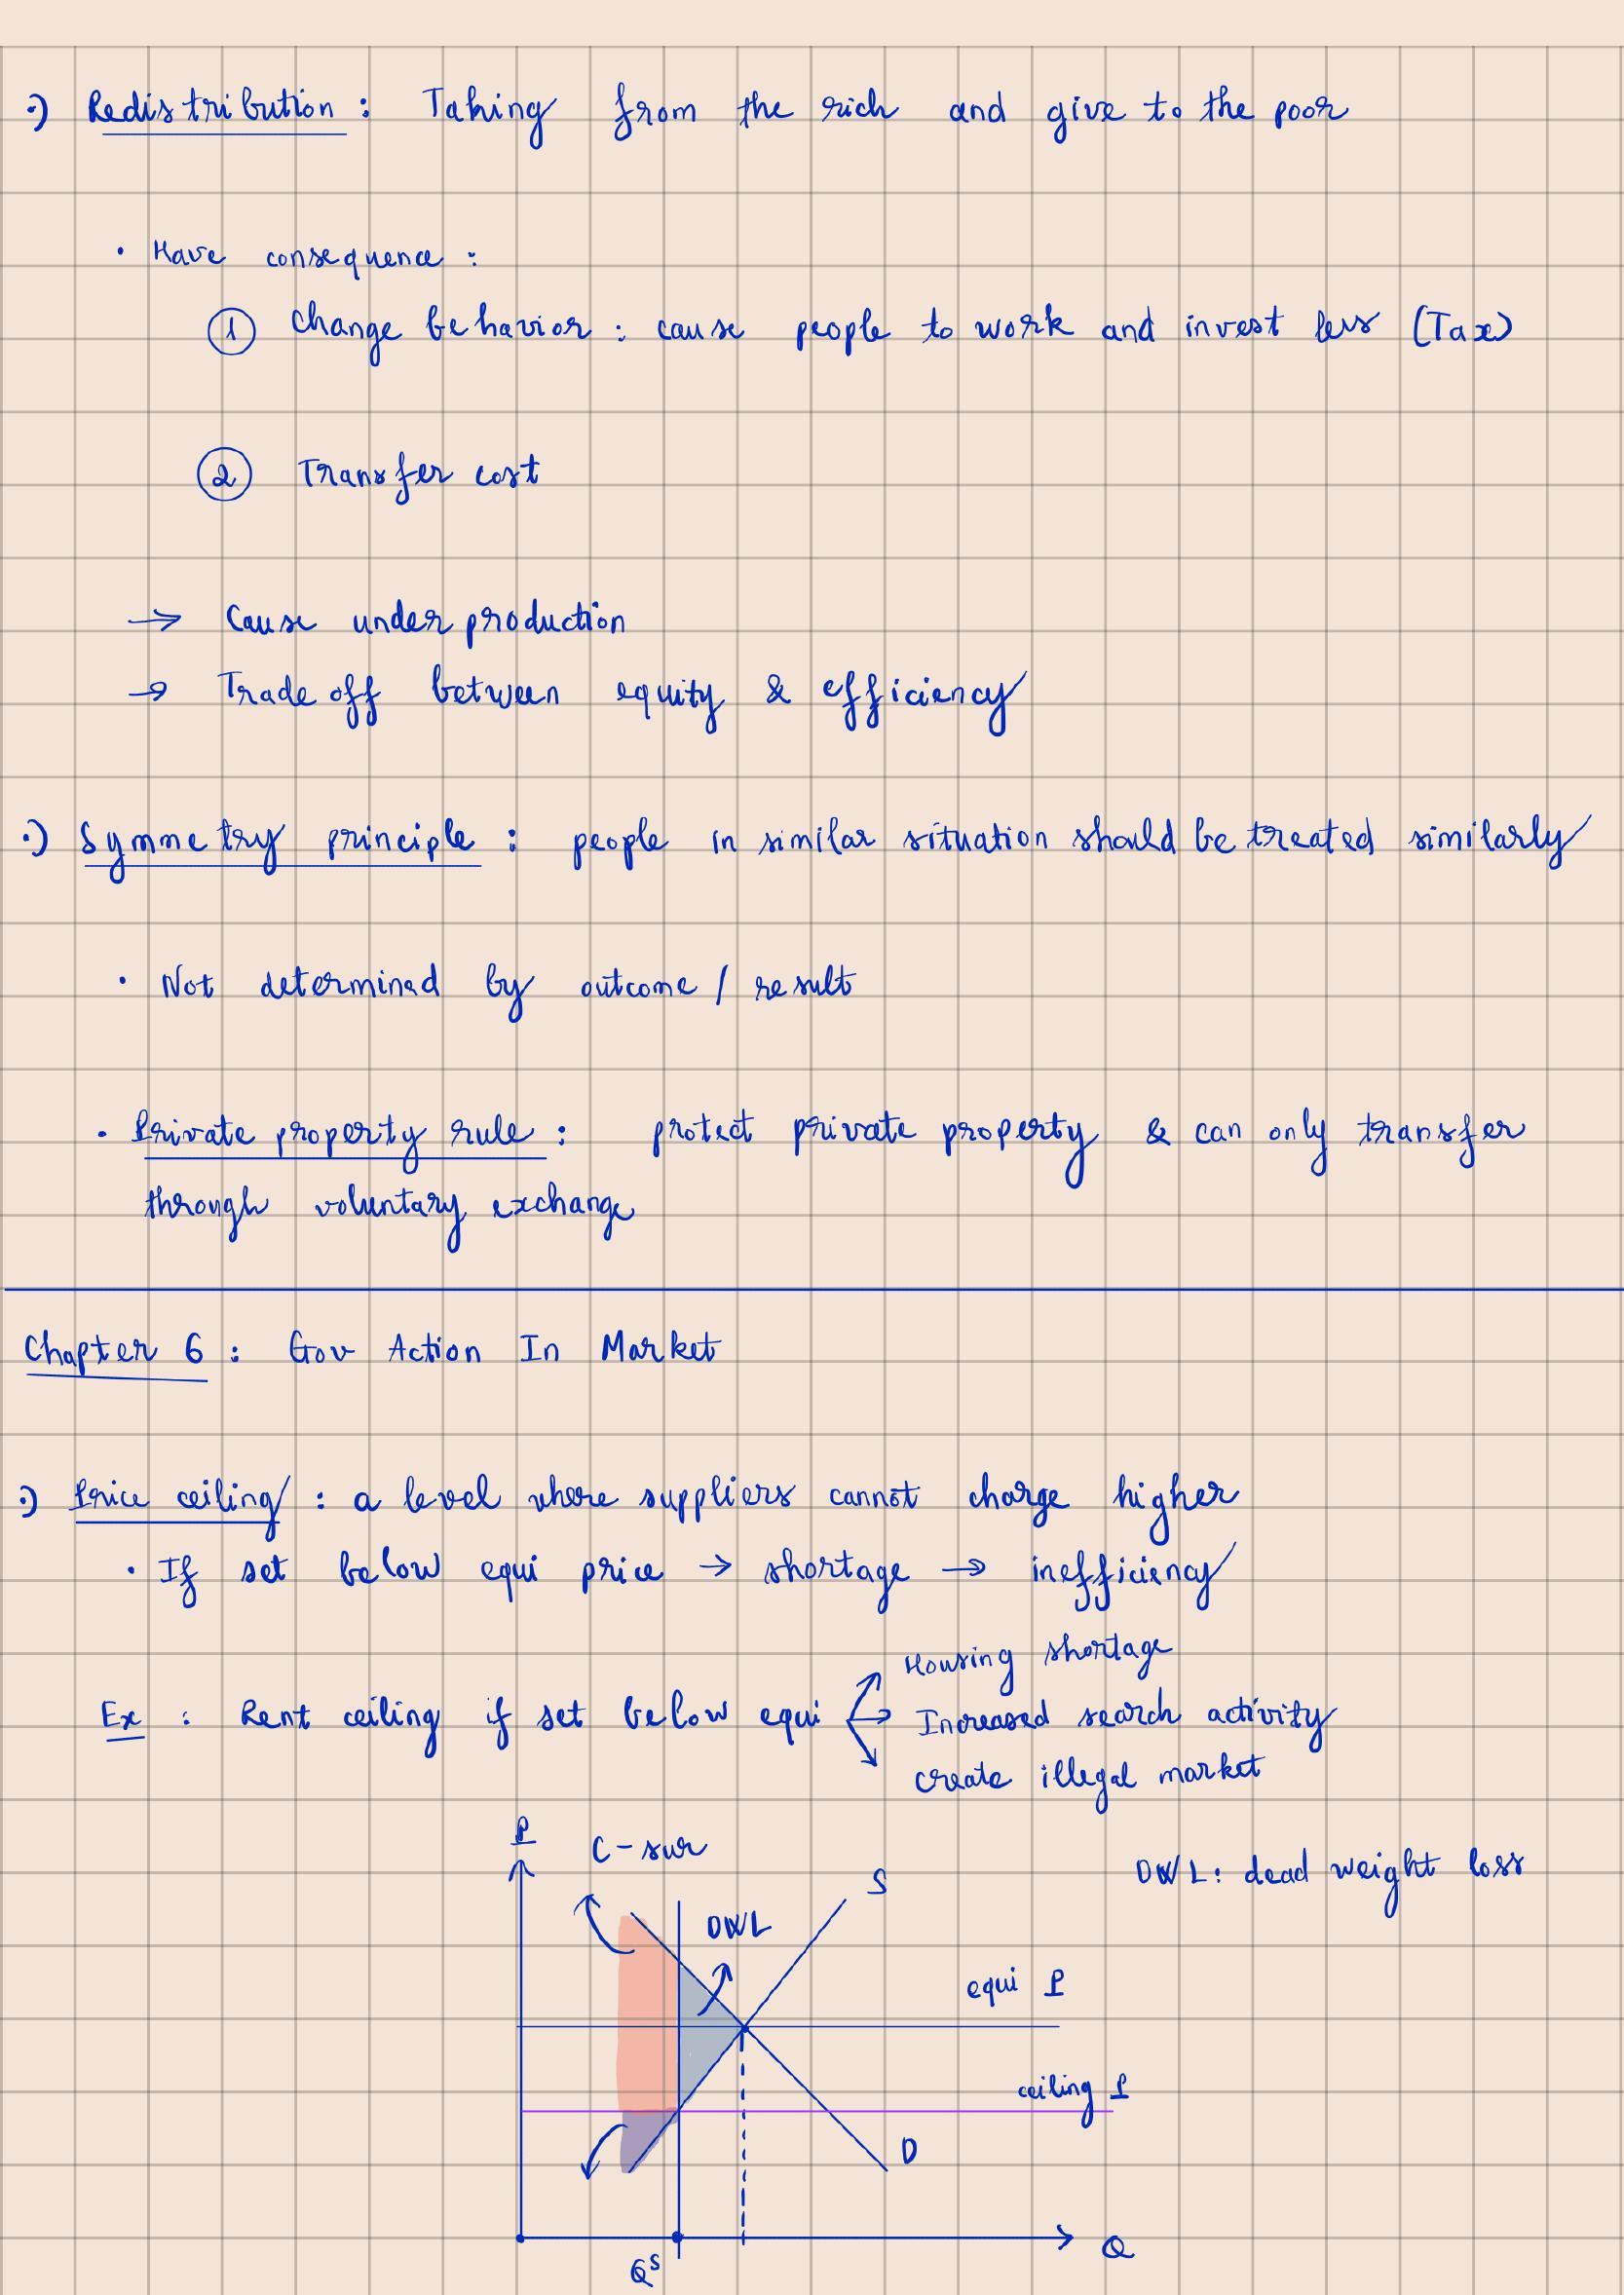 ·) Redistribution : Taking from the rich and give to the poor
· Have consequence :
① Change behavior : cause people to work and invest less (Tax)
② Transfer cost
→ Cause underproduction
→ Trade off between equity & efficiency
·) Symmetry principle : people in similar situation should be treated similarly
· Not determined by outcome / result
· Private property rule : protect private property & can only transfer
through voluntary exchange
Chapter 6 : Gov Action In Market
·) Price ceiling : a level where suppliers cannot charge higher
· If set below equi price → shortage → inefficiency
Housing shortage
Ex : Rent ceiling if set below equi → Increased search activity
create illegal market
P
C-sur
DWL: dead weight loss
S
DWL
equi P
ceiling P
D
Q
Qˢ